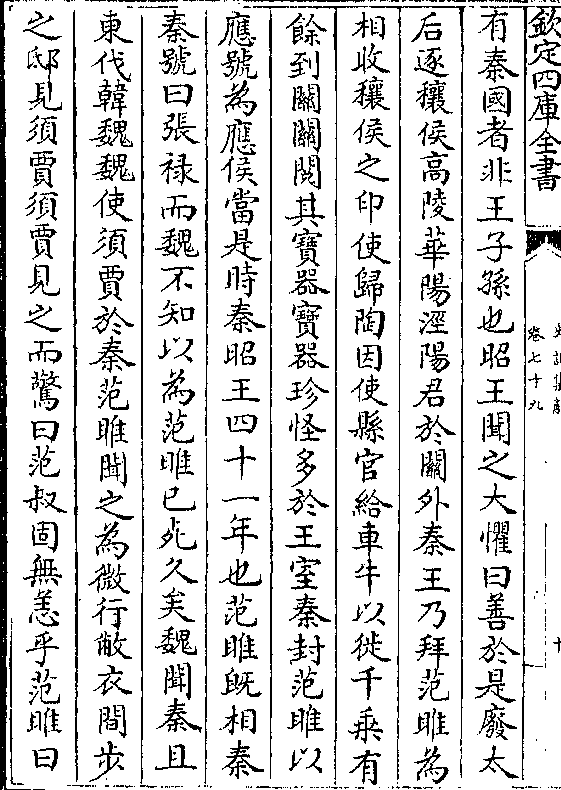 欽定四庫全書
卷七十九
十
有秦國者非王子孫也昭王聞之大懼曰善於是廢太
后逐穰侯高陵華陽涇陽君於關外秦王乃拜范睢為
相收穰侯之印使歸陶因使縣官給車牛以徙千乘有
餘到關關閱其寶器寶器珍怪多於王室秦封范睢以
應號為應侯當是時秦昭王四十一年也范睢既相秦
秦號曰張禄而魏不知以為范睢已死久矣魏聞秦且
東伐韓魏魏使須賈於秦范睢聞之為微行敝衣間步
之邸見須賈須賈見之而驚曰范叔固無恙乎范睢曰